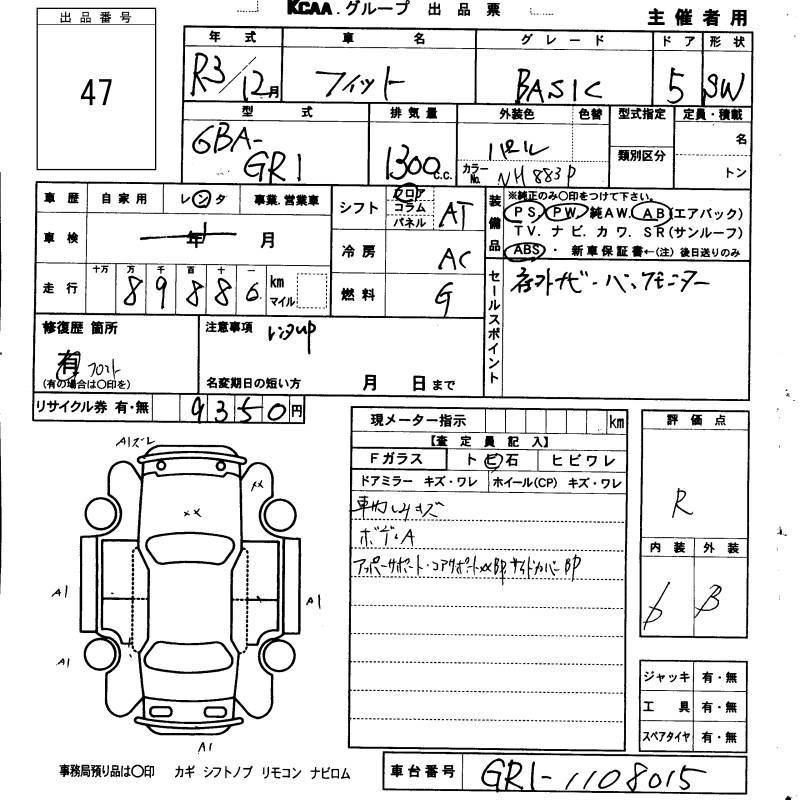 KCAA.グループ 出品票
主催者用
出品番号
47
年式 車名 グレード ドア 形状
R3/12月 フィット BASIC 5 SW
型式 排気量 外装色 色替 型式指定 定員・積載
6BA-
GR1 1300c.c. パール 名
類別区分
カラーNo. NH883P トン
車歴 自家用 レンタ 事業.営業車
車検 年 月
走行 十万 万 千 百 十 一
89886 km
マイル
シフト フロア
コラム
パネル AT
冷房 AC
燃料 G
装備品
※純正のみ〇印をつけて下さい。
PS PW 純AW. AB(エアバック)
TV. ナビ. カワ. SR(サンルーフ)
ABS・新車保証書←(注)後日送りのみ
セールスポイント
社外ナビ・バックモニター
修復歴 箇所
有 フロント
(有の場合は〇印を)
注意事項 レンタup
名変期日の短い方 月 日まで
リサイクル券 有・無 9350円
現メーター指示 km
【査定員記入】
Fガラス トビ石 ヒビワレ
ドアミラー キズ・ワレ ホイール(CP) キズ・ワレ
車内しみキズ
ボディA
アッパーサポート・コアサポートXX BP サイドカバーBP
評価点
R
内装 外装
B
ジャッキ 有・無
工具 有・無
スペアタイヤ 有・無
A1ズレ
XX
XX
A1
A1
A1
A1
事務局預り品は〇印 カギ シフトノブ リモコン ナビロム
車台番号 GR1-1108015